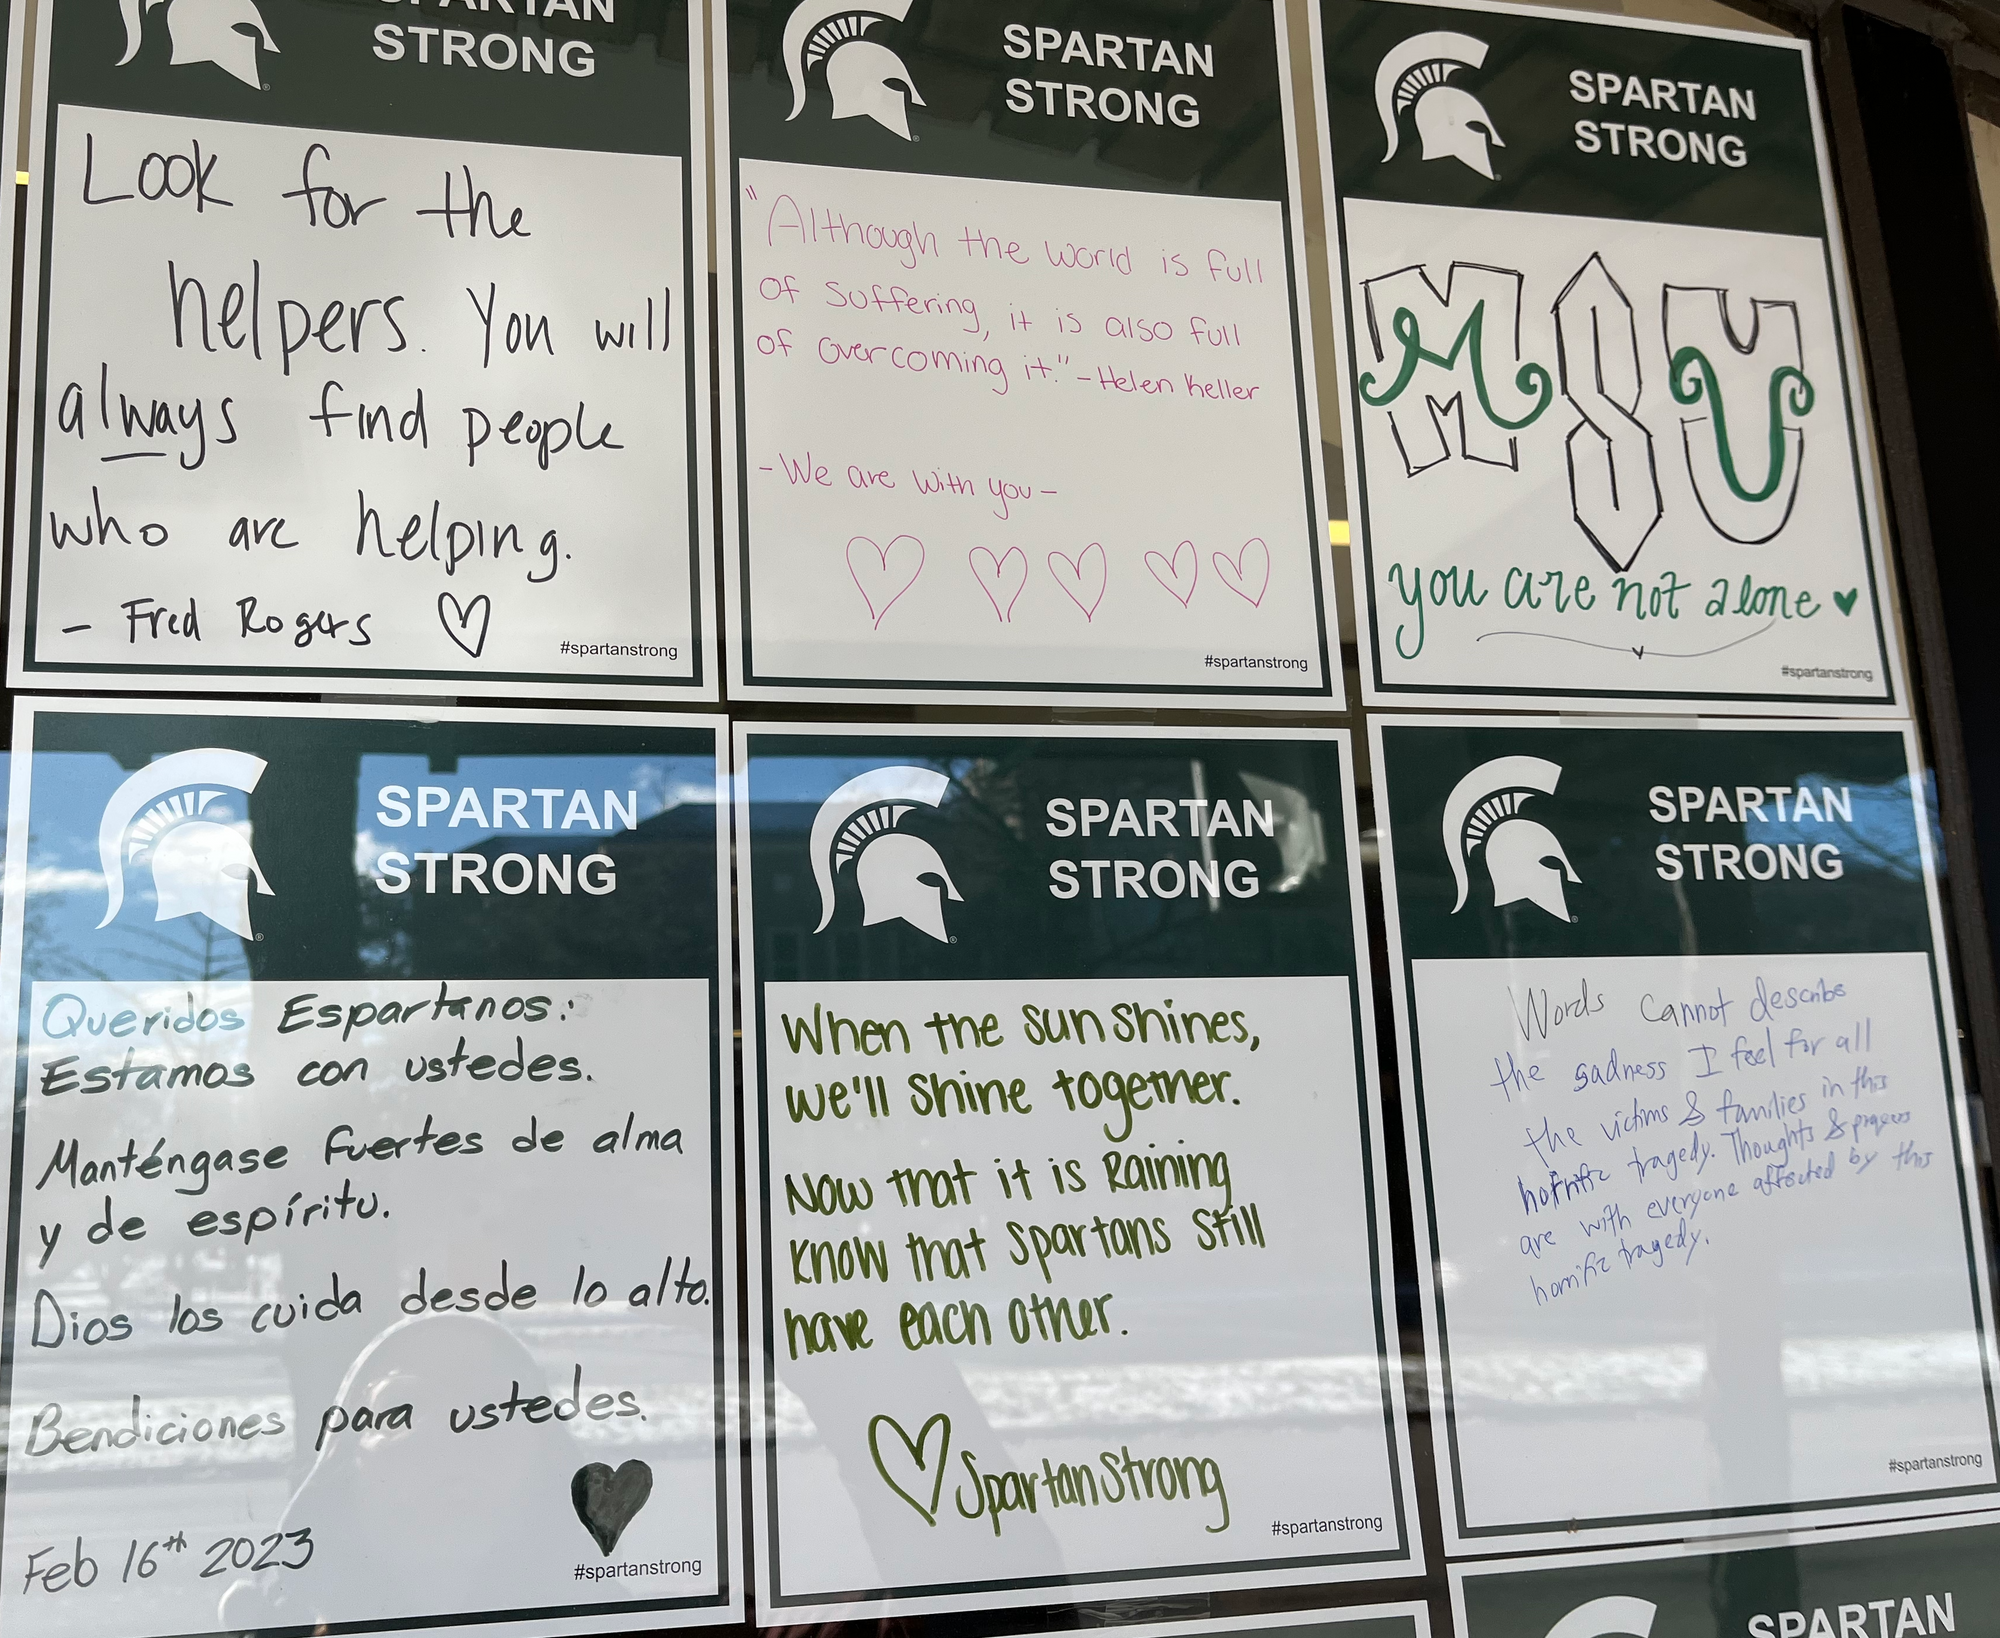 SPARTAN
STRONG
Look for the
helpers. You will
always find people
who are helping.
- Fred Rogers
#spartanstrong
SPARTAN
STRONG
"Although the world is full
of suffering, it is also full
of overcoming it." - Helen Keller
- We are with you -
#spartanstrong
SPARTAN
STRONG
MSU
you are not alone
#spartanstrong
SPARTAN
STRONG
Queridos Espartanos:
Estamos con ustedes.
Manténgase fuertes de alma
y de espíritu.
Dios los cuida desde lo alto.
Bendiciones para ustedes.
Feb 16th 2023
#spartanstrong
SPARTAN
STRONG
When the sun shines,
we'll shine together.
Now that it is Raining
know that Spartans still
have each other.
Spartan Strong
#spartanstrong
SPARTAN
STRONG
Words cannot describe
the sadness I feel for all
the victims & families in this
horrific tragedy. Thoughts & prayers
are with everyone affected by this
horrific tragedy.
#spartanstrong
SPARTAN